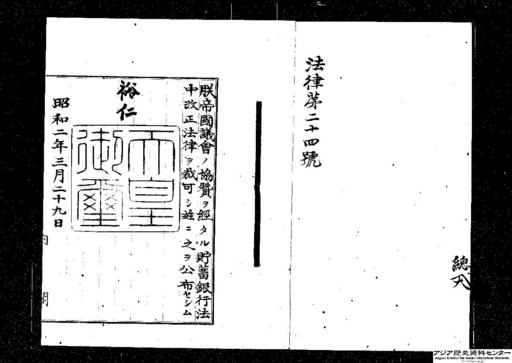 法律第二十四號
總九
朕帝國議會ノ協贊ヲ經タル貯蓄銀行法
中改正法律ヲ裁可シ玆ニ之ヲ公布セシム
裕仁
天皇
御璽
昭和二年三月二十九日
内閣
アジア歴史資料センター
Japan Center for Asian Historical Records